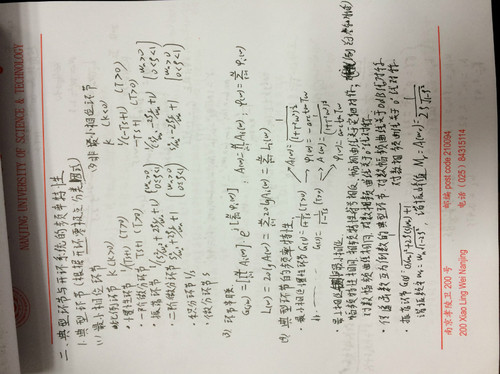 NANJING UNIVERSITY OF SCIENCE & TECHNOLOGY
二、典型环节与开环系统的频率特性
1. 典型环节 (根据开环零极点分类)
(1) 最小相位环节
比例环节 K (K>0)
· 惯性环节 1/(Ts+1) (T>0)
· 一阶微分环节 Ts+1 (T>0)
· 振荡环节 1/(s²/ωn²+2ξs/ωn+1) {ωn>0 0≤ξ<1}
· 二阶微分环节 s²/ωn²+2ξs/ωn+1 {ωn>0 0≤ξ<1}
· 积分环节 1/s
· 微分环节 s
(2) 非最小相位环节
K (K<0)
1/(-Ts+1) (T>0)
-Ts+1 (T>0)
1/(s²/ωn²-2ξs/ωn+1) {ωn>0 0<ξ<1}
s²/ωn²-2ξs/ωn+1 {ωn>0 0<ξ<1}
(3) 环节串联
G(jω)=[∏Ai(ω)]·e^{j[∑φi(ω)]} , A(ω)=∏Ai(ω) ; φ(ω)=∑φi(ω)
L(ω)=20lgA(ω)=∑20lgAi(ω)=∑Li(ω)
(4) 典型环节的频率特性
· 最小相位惯性环节 G(s)=1/(1+Ts) (T>0) A(ω)=1/(1+T²ω²)^½
φ(ω)=-arctanTω
非 G(s)=1/(1-Ts) (T>0) A(ω)=1/(1+T²ω²)^½
φ(ω)=arctanTω
· 最小相位和非最小相位
幅频特性相同,相频特性符号相反,幅相曲线关于实轴对称;
对数幅频曲线相同,对数相频曲线关于0°线对称.
· 传递函数互为倒数的典型环节,对数幅频曲线关于0dB线对称.
对数相频曲线关于0°线对称.
· 振荡环节 G(s)=1/((s/ωn)²+2ξ(s/ωn)+1)
谐振频率ωr=ωn√1-2ξ² , 谐振峰值 Mr=A(ωr)=1/(2ξ√1-ξ²)
南京孝陵卫 200 号 邮编 post code 210094
200 Xiao Ling Wei Nanjing 电话 (025) 84315114